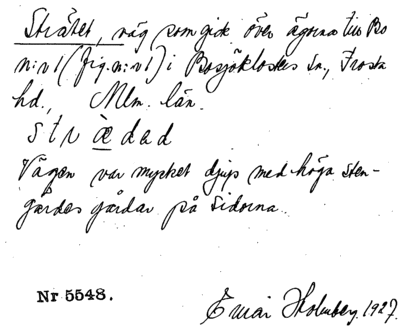 Strätet, väg som gick över ägorna till Bo
n:r 1 (fig. n:r 1) i Bosjöklosters sn., Frosta
hd., Mlm. län.
strædad
Vägen var mycket djup med höga sten-
gärdes gårdar på sidorna.
Nr 5548.
Einar Holmberg. 1927.